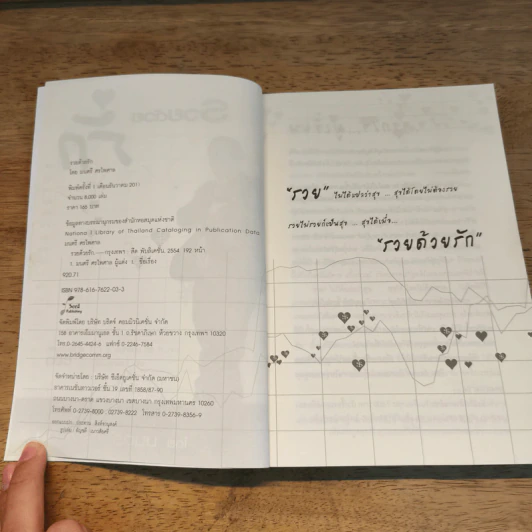 รวยด้วยรัก
โดย มนตรี ศรไพศาล
พิมพ์ครั้งที่ 1 เดือนธันวาคม 2011
จำนวน 5,000 เล่ม
ราคา 195 บาท
ข้อมูลทางบรรณานุกรมของสำนักหอสมุดแห่งชาติ
National Library of Thailand Cataloging in Publication Data
มนตรี ศรไพศาล
รวยด้วยรัก.--กรุงเทพฯ : คิด พับลิเคชั่น, 2554. 192 หน้า
1. มนตรี ศรไพศาล ผู้แต่ง I. ชื่อเรื่อง
920.71
ISBN 978-616-7622-03-3
Seed
จัดพิมพ์โดย บริษัท บริดจ์ คอมมิวนิเคชั่น จำกัด
ชั้น 1 ถ.รัชดาภิเษก ห้วยขวาง กรุงเทพฯ 10320
โทร.0-2645-4424-6 แฟกซ์ 0-2246-7584
www.bridgecomm.org
จัดจำหน่ายโดย : บริษัท ซีเอ็ดยูเคชั่น จำกัด (มหาชน)
อาคารเนชั่นทาวเวอร์ ชั้น 19 เลขที่ 1858/87-90
ถนนบางนา-ตราด แขวงบางนา เขตบางนา กรุงเทพมหานคร 10260
โทรศัพท์ 0-2739-8000 , 02739-8222 โทรสาร 0-2739-8356-9
"รวย" ไม่ได้แปลว่าสุข ... สุขได้โดยไม่ต้องรวย
รวยไม่รวยก็เป็นสุข ... สุขได้เมื่อ...
"รวยด้วยรัก"